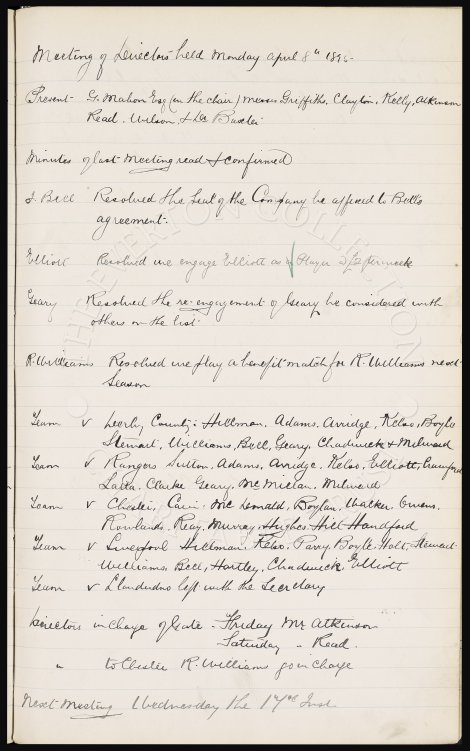 Meeting of Directors held Monday April 8th 1895-
Present - G. Mahon Esq (in the chair) Messrs Griffiths, Clayton, Kelly, Atkinson
Read. Wilson, & Dr Baxter
Minutes of last Meeting read & confirmed
J. Bell Resolved the Seal of the Company be affixed to Bell's
agreement.
Elliott Resolved we engage Elliott as a Player per week
Geary Resolved the re-engagement of Geary be considered with
others on the list
R. Williams Resolved we play a benefit match for R. Williams next
Season
Team v Derby County: Hillman. Adams. Arridge, Kelso, Boyle
Stewart, Williams, Bell, Geary, Chadwick & Milward
Team v Rangers Sutton, Adams, Arridge, Kelso, Elliott, Crawford
Latta. Clarke Geary. McMillan. Milward
Team v Chester, Cain. McDonald, Boylan, Walker, Owens.
Rowlands, Reay, Murray, Hughes, Hill Handford
Team v Liverpool Hillman. Kelso. Parry, Boyle, Holt, Stewart
Williams, Bell, Hartley, Chadwick, Elliott
Team v Llandudno left with the Secretary
Directors in Charge of Gate - Friday Mr Atkinson
Saturday " Read.
" to Chester R. Williams go in charge
Next Meeting Wednesday the 17th Inst
THE EVERTON COLLECTION